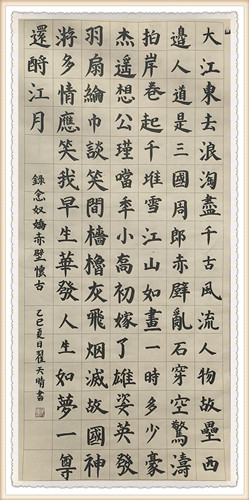 大江東去浪淘盡千古風流人物故壘西
邉人道是三國周郎赤壁亂石穿空驚濤
拍岸卷起千堆雪江山如畫一時多少豪
杰遙想公瑾當秊小喬初嫁了雄姿英發
羽扇綸巾談笑間檣櫓灰飛烟滅故國神
游多情應笑我早生華發人生如夢一尊
還酹江月
錄念奴嬌赤壁懷古
乙巳夏日翟天晴書